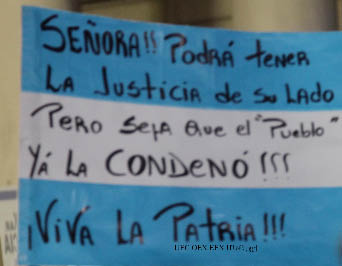 SEÑORA!! PODRÁ tener
LA JusticiA de su LADO
PERO SEPA QUE el "Pueblo"
YÁ LA CONDENÓ!!!
¡VIVÁ LA PATRIA!!!